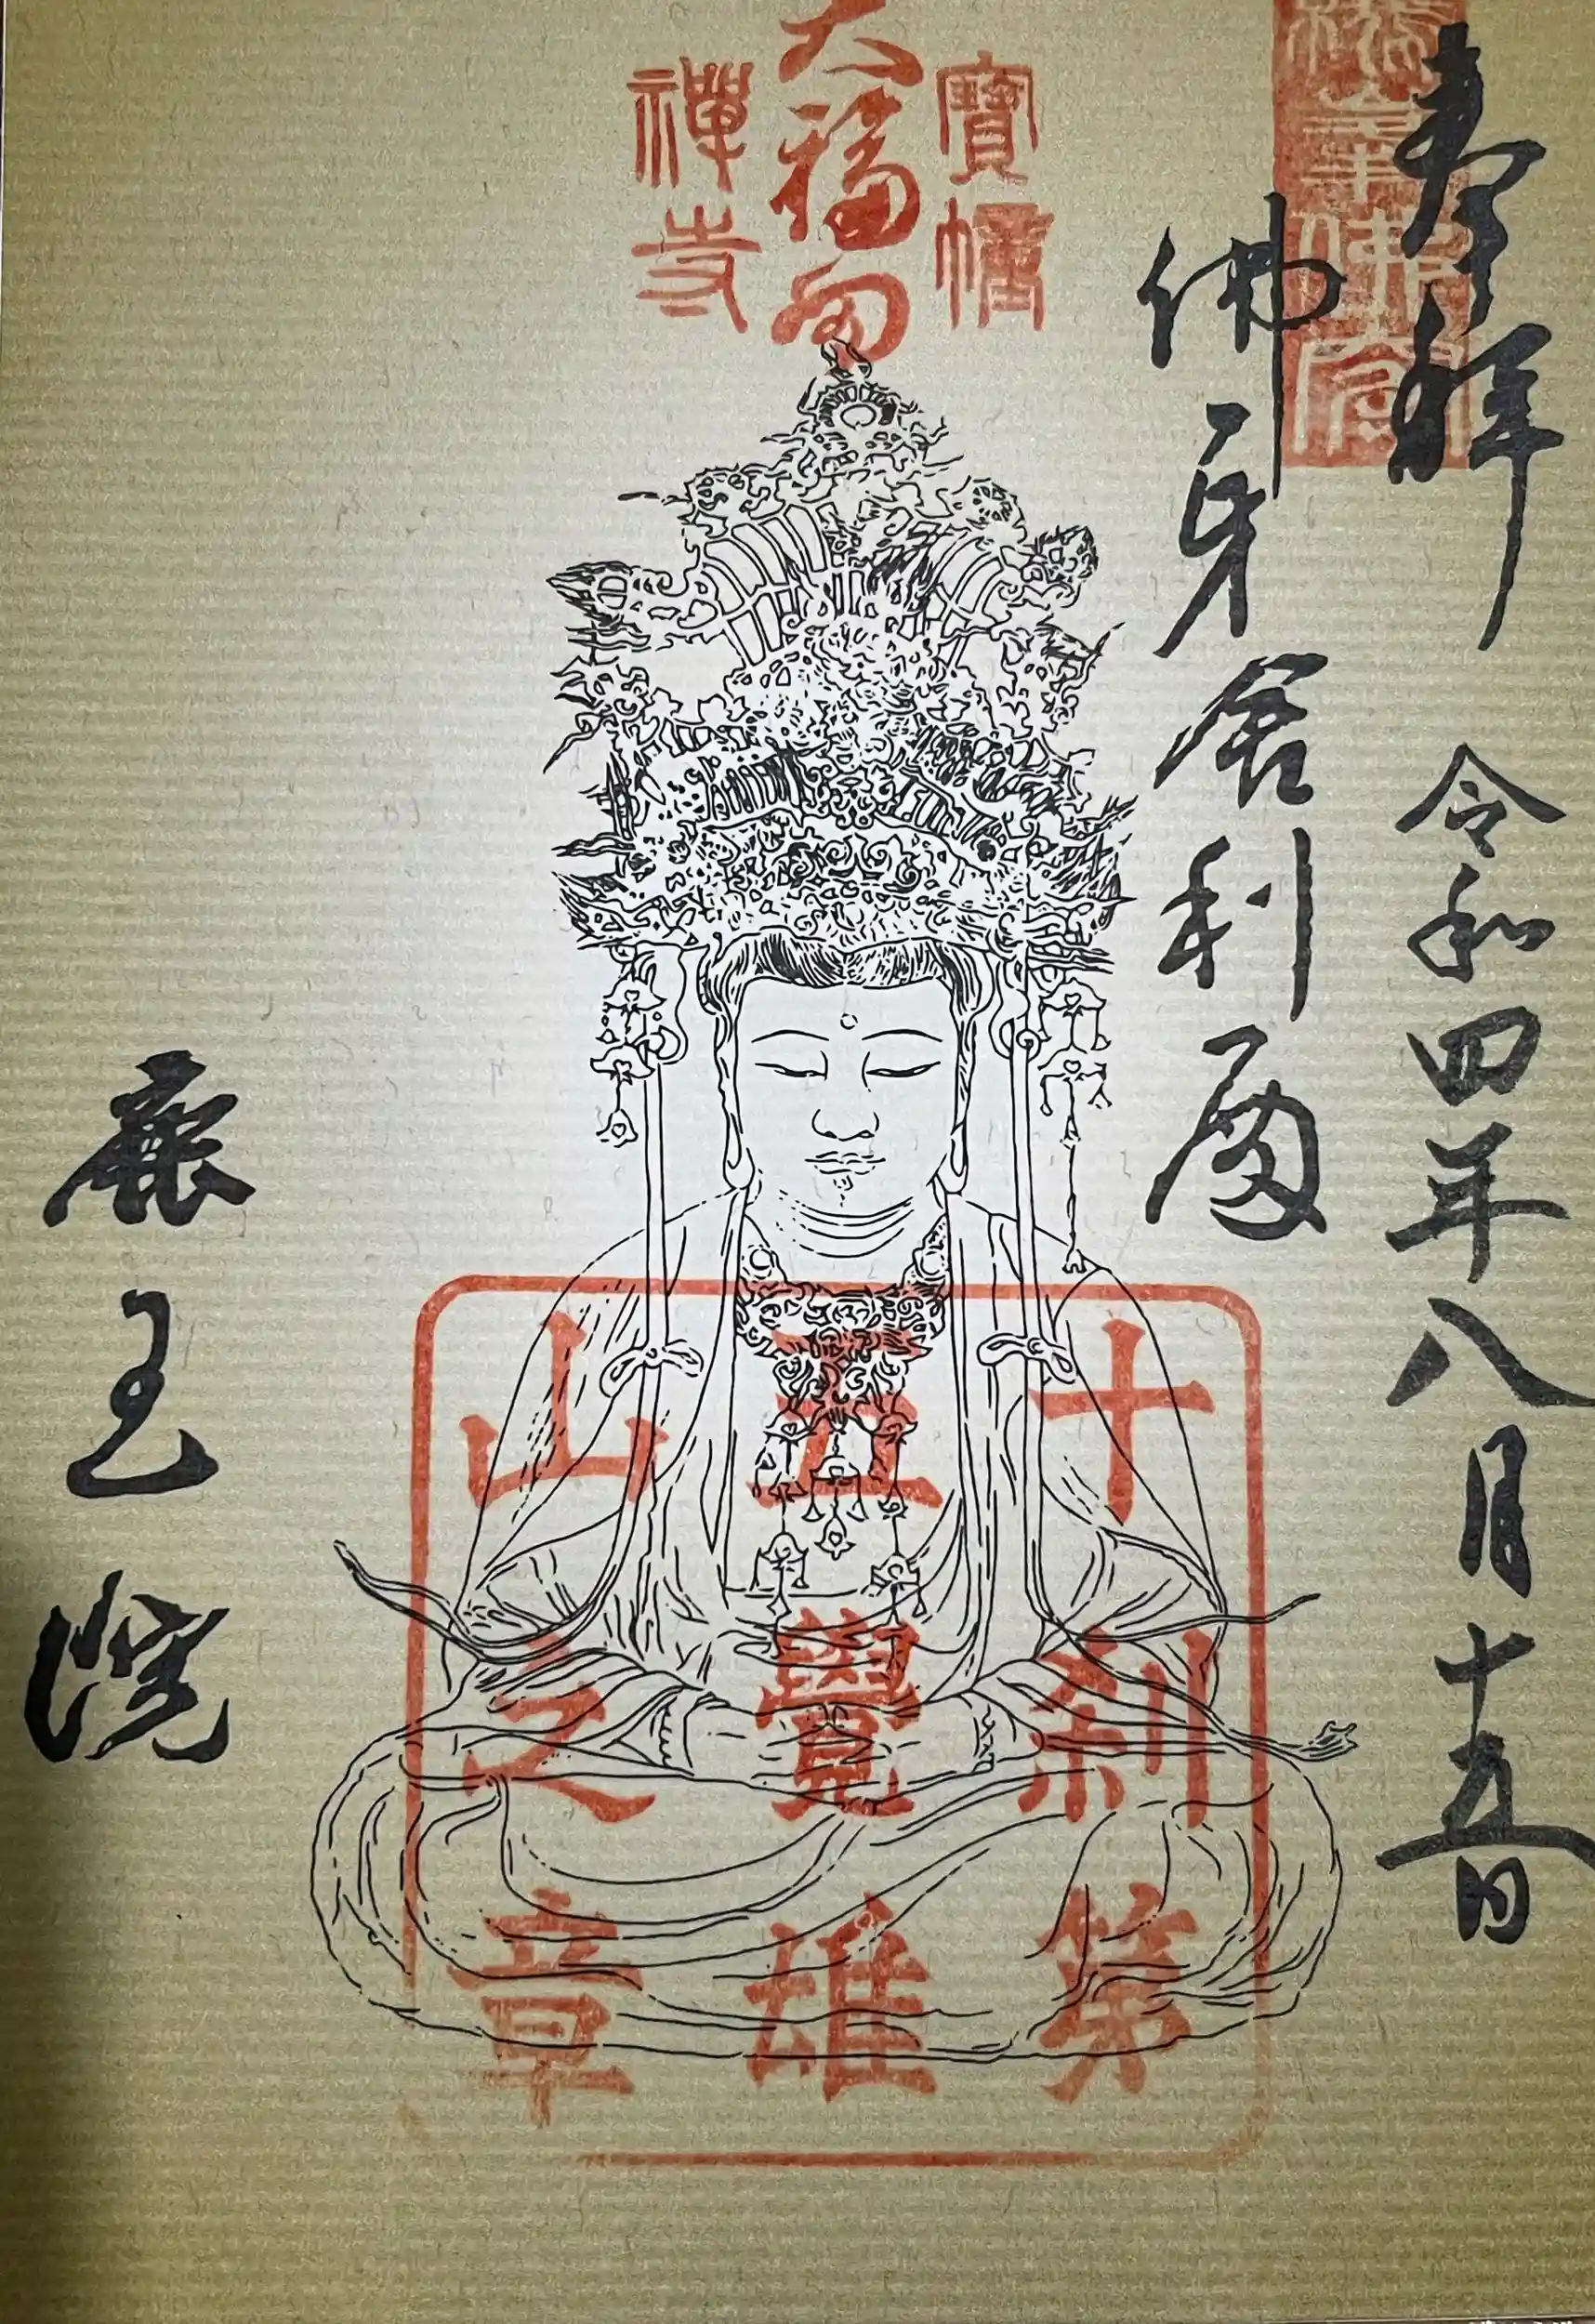 奉拜 令和四年八月十五日
佛牙舎利殿
鹿王院
寶幢
大福田
禪寺
十刹第
五覺雄
山之章